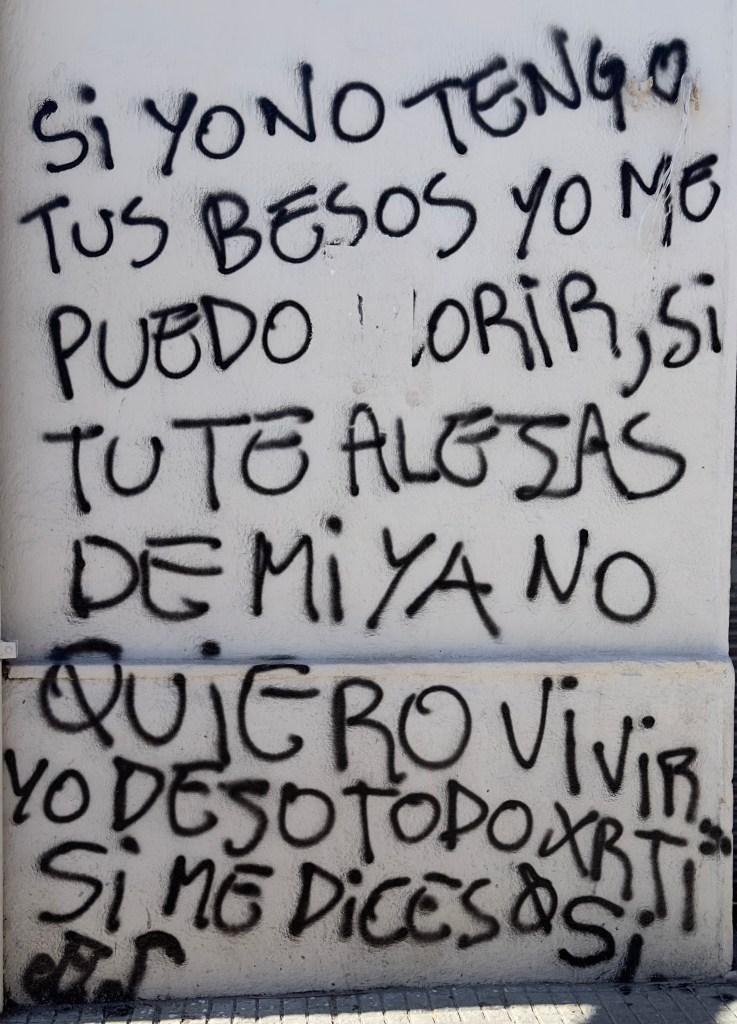 Si YO NO TENGO
TUS BESOS YO ME
PUEDO MORiR, Si
TU TE ALEJAS
DE Mi YA NO
QUiERO ViViR
YO DEJO TODO XR Ti
Si ME DiCES Q Si